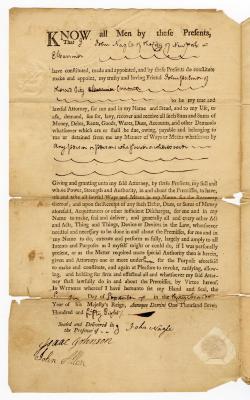 KNOW all Men by these Presents,
That I John Nagle of
have constituted, made and appointed, and by these Presents do constitute
make and appoint, my trusty and loving Friend John
to be my true and
lawful Attorney, for me and in my Name and Stead, and to my Use, to
ask, demand, sue for, levy, recover and receive all such Sum and Sums of
Money, Debts, Rents, Goods, Wares, Dues, Accounts, and other Demands
whatsoever which are or shall be due, owing, payable and belonging to
me or detained from me any Manner of Ways or Means whatsoever by
any person or persons whatsoever
Giving and granting unto my said Attorney, by these Presents, my full and
whole Power, Strength and Authority, in and about the Premisses, to have,
use and take all lawful Ways and Means in my Name for the Recovery
thereof; and upon the Receipt of any such Debts, Dues, or Sums of Money
aforesaid, Acquittances or other sufficient Discharges, for me and in my
Name to make, seal and deliver; and generally all and every other Act
and Acts, Thing, and Things, Device or Devices in the Law, whatsoever
needful and necessary to be done in and about the Premisses, for me and in
my Name to do, execute and perform as fully, largely and amply to all
Intents and Purposes as I myself might or could do, if I was personally
present, or as the Matter required more special Authority than is herein
given, and Attorneys one or more under him for the Purpose aforesaid
to make and constitute, and again at Pleasure to revoke, ratifying, allow-
ing, and holding for firm and effectual all and whatsoever my said Attor-
ney shall lawfully do in and about the Premisses, by Virtue hereof.
In WITNESS whereof I have hereunto set my Hand and Seal, the
Day of in the
Year of his Majesty's Reign, Annoque Domini One Thousand Seven
Hundred and fifty Eight
Sealed and Delivered in
the Presence of
John Nagle
Isaac Johnson
John Allen